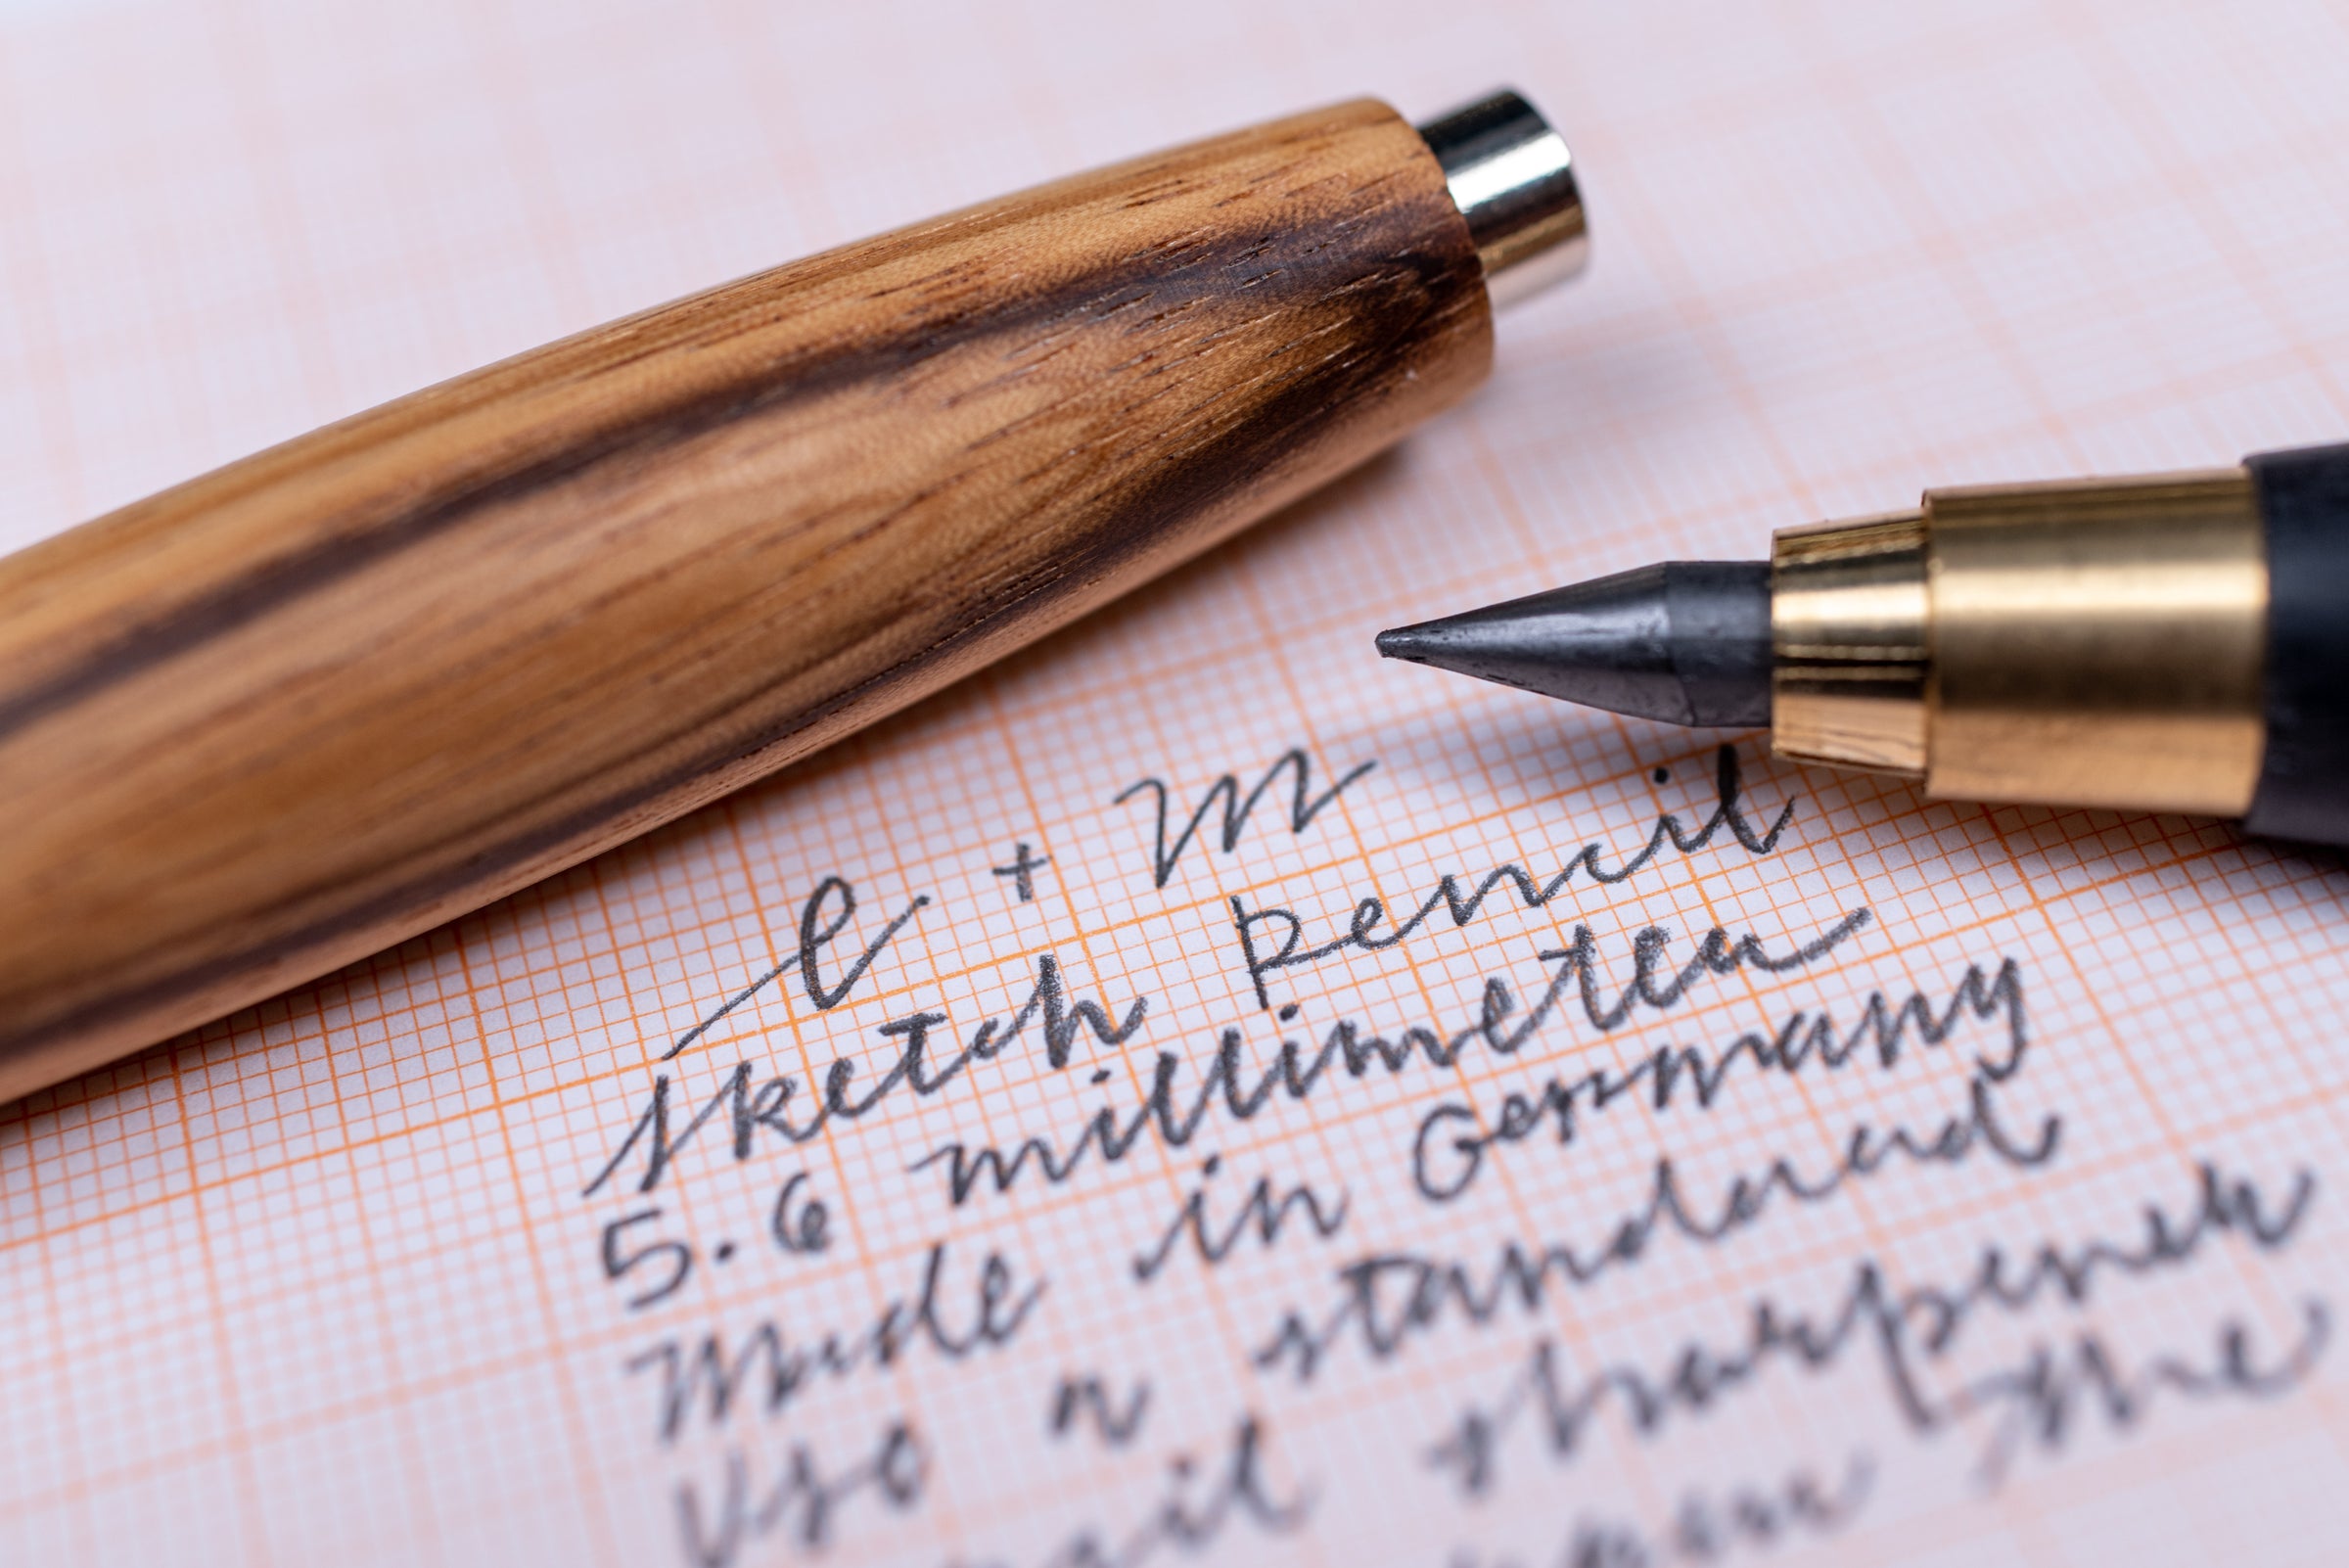 e + m
sketch pencil
5.6 millimeter
Made in Germany
Use a standard
sharpener
the